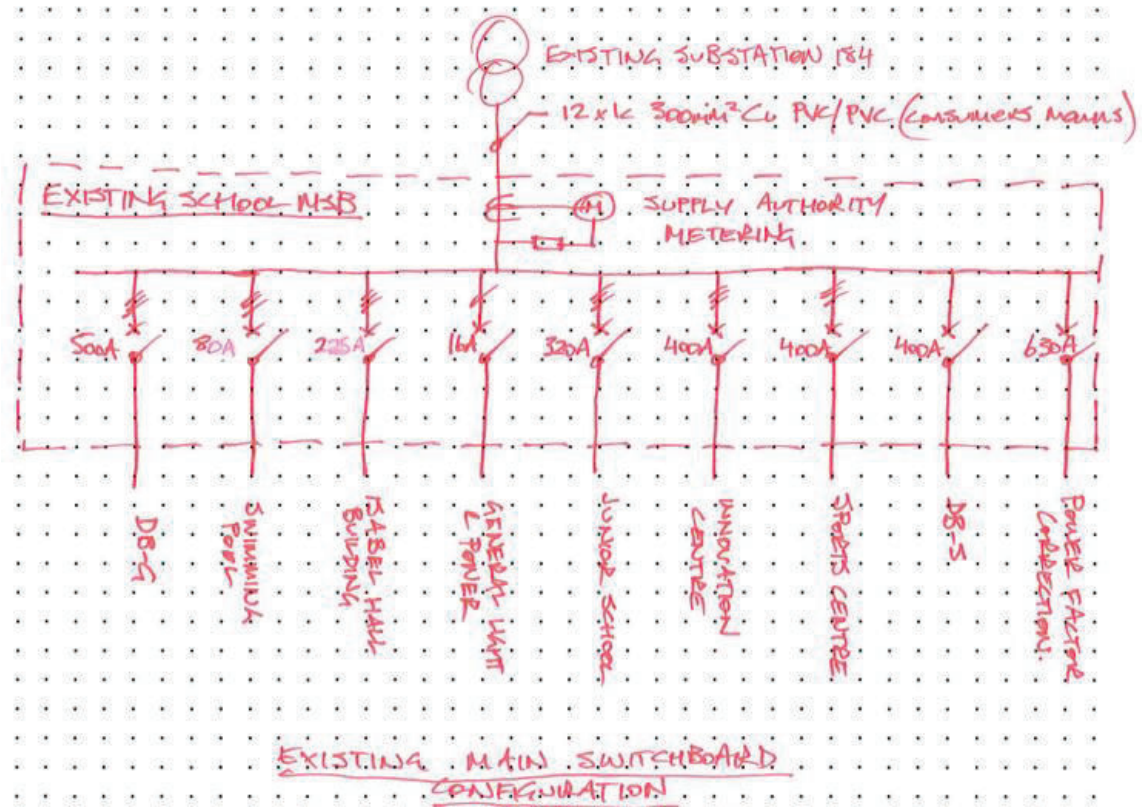 EXISTING SUBSTATION 184
12 x 1c 300mm² Cu PVC/PVC (consumers mains)
EXISTING SCHOOL MSB
M
SUPPLY AUTHORITY
METERING
500A
80A
225A
16A
320A
400A
400A
400A
630A
DB-G
SWIMMING
POOL
ISABEL HALL
BUILDING
GENERAL LIGHT
& POWER
JUNIOR SCHOOL
INNOVATION
CENTRE
SPORTS CENTRE
DB-S
POWER FACTOR
CORRECTION.
EXISTING MAIN SWITCHBOARD
CONFIGURATION